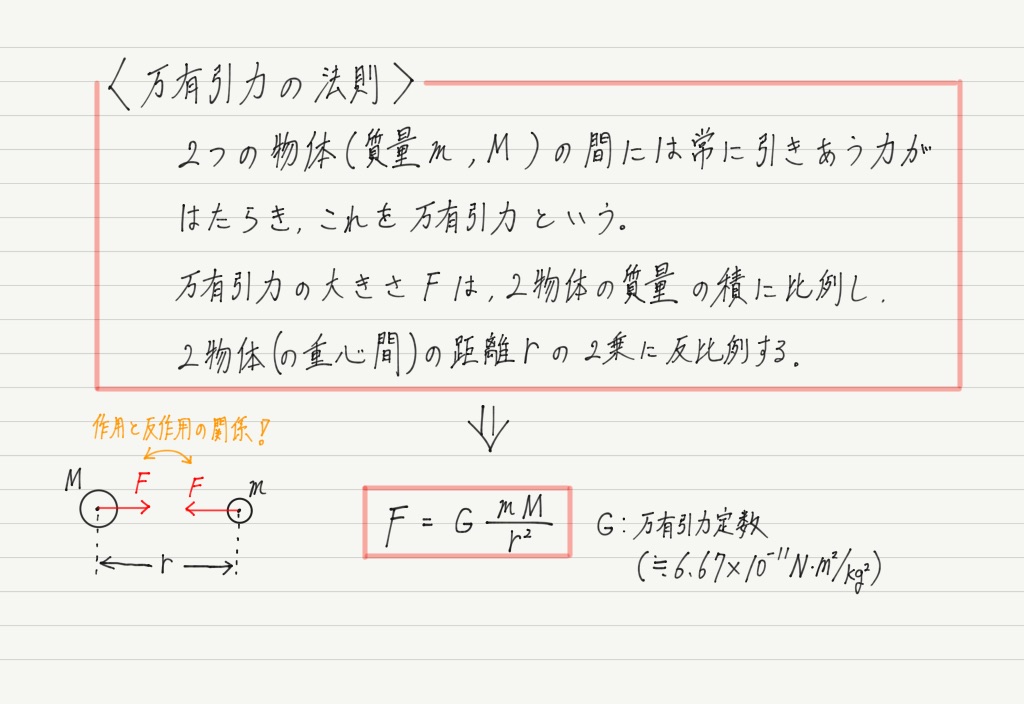 〈万有引力の法則〉
2つの物体(質量m,M)の間には常に引きあう力が
はたらき,これを万有引力という。
万有引力の大きさFは,2物体の質量の積に比例し,
2物体(の重心間)の距離rの2乗に反比例する。
⇓
作用と反作用の関係!
M F F m
r
F = G mM/r²
G:万有引力定数
(≒6.67×10⁻¹¹N·m²/kg²)